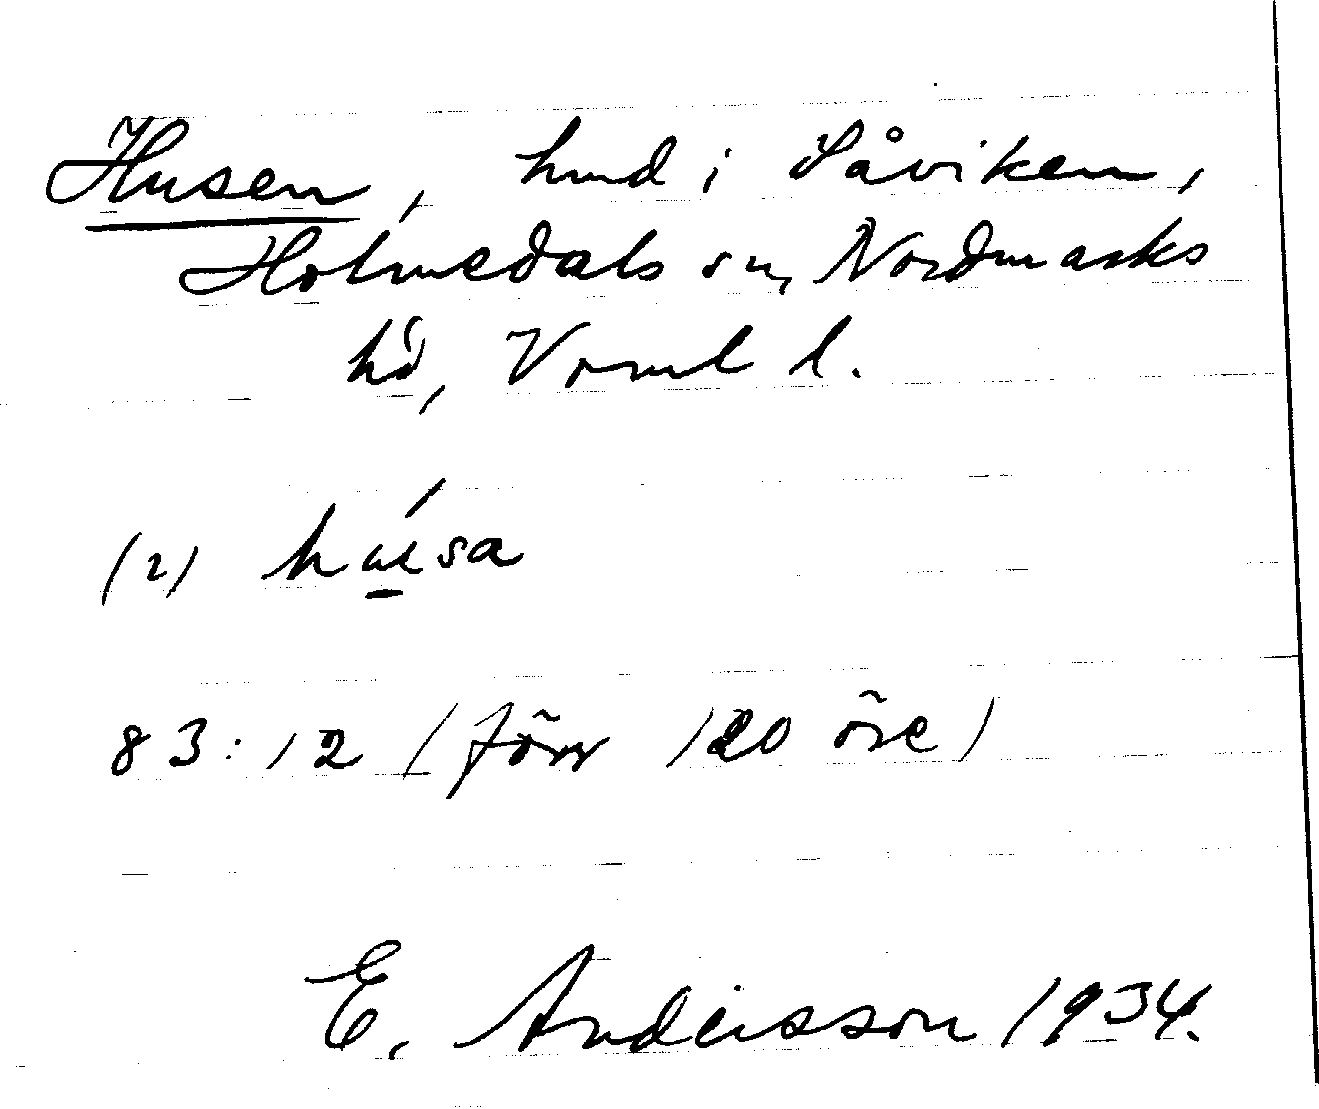 Husen, hmd i Såviken,
Holmedals sn, Nordmarks
hd, Verml l.
(2) húsa
83:12 (förr 120 öre)
E. Andersson 1934.